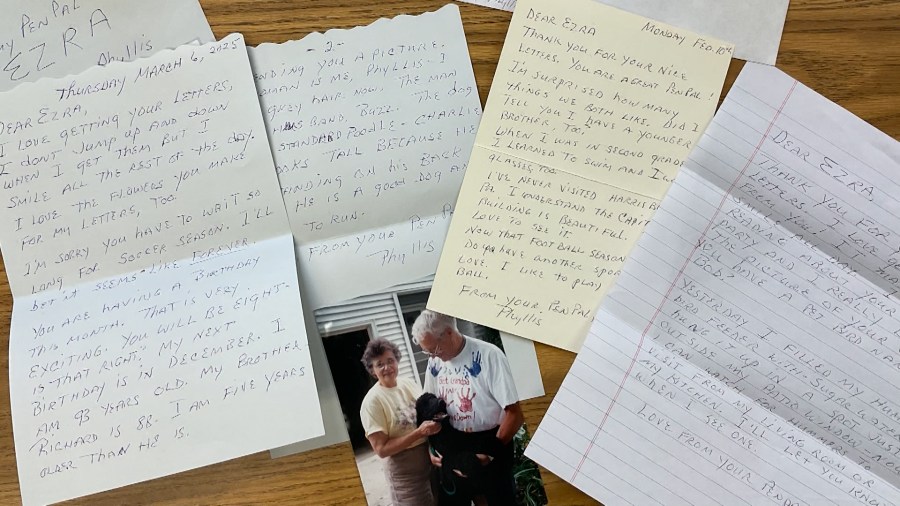 PEN PAL
EZRA
Phyllis
THURSDAY MARCH 6, 2025
DEAR EZRA,
I LOVE GETTING YOUR LETTERS,
I DONT JUMP UP AND DOWN
WHEN I GET THEM BUT I
SMILE ALL THE REST OF THE DAY.
I LOVE THE FLOWERS YOU MAKE
FOR MY LETTERS, TOO.
I'M SORRY YOU HAVE TO WAIT SO
LONG FOR SOCCER SEASON. I'LL
bet it SEEMS LIKE FOREVER.
YOU ARE HAVING A BIRTHDAY
THIS MONTH. THAT IS VERY
EXCITING. YOU WILL BE EIGHT-
IS THAT RIGHT? MY NEXT
BIRTHDAY IS IN DECEMBER. I
AM 93 YEARS OLD. MY BROTHER
RICHARD IS 88- I AM FIVE YEARS
OLDER THAN HE IS.
-2-
NDING YOU A PICTURE.
OMAN IS ME, PHYLLIS- I
GREY HAIR NOW. THE MAN
HUSBAND, BUZZ. THE DOG
STANDARD POODLE- CHARLIE
OKS TALL BECAUSE HE
ANDING ON HIS BACK
HE IS A GOOD DOG AN
TO RUN.
FROM YOUR PEN PAL
Phyllis
DEAR EZRA MONDAY FEB. 10th
THANK YOU FOR YOUR NICE
LETTERS. YOU ARE A GREAT PEN PAL!
I'M SURPRISED HOW MANY
THINGS WE BOTH LIKE. DID I
TELL YOU I HAVE A YOUNGER
BROTHER, TOO.
WHEN I WAS IN SECOND GRADE
I LEARNED TO SWIM AND I W
GLASSES TOO.
I'VE NEVER VISITED HARRISBU
PA. I UNDERSTAND THE CAPIT
BUILDING IS BEAUTIFUL.
LOVE TO SEE IT.
NOW THAT FOOTBALL SEASON
DO YOU HAVE ANOTHER SPOR
LOVE. I LIKE TO PLAY
BALL.
FROM YOUR PEN PAL
Phyllis
DEAR EZRA,
THANK YOU FOR
LETTERS. I LOVE
FROM YOU. I
READ ABOUT YOUR
THE PICTURE OF YOUR
YOU HAVE A PET BIRD NA
BOB?
YESTERDAY I FILLED MY H
BIRD FEEDER WITH SUGAR WATER
HUNG IT UP IN A SPOT JUST
OUTSIDE MY
I CAN WATCH FOR
BIRDS FROM MY LIVING ROOM OR
MY KITCHEN. I'LL LET YOU KNOW
WHEN I SEE ONE.
LOVE FROM YOUR PENPA